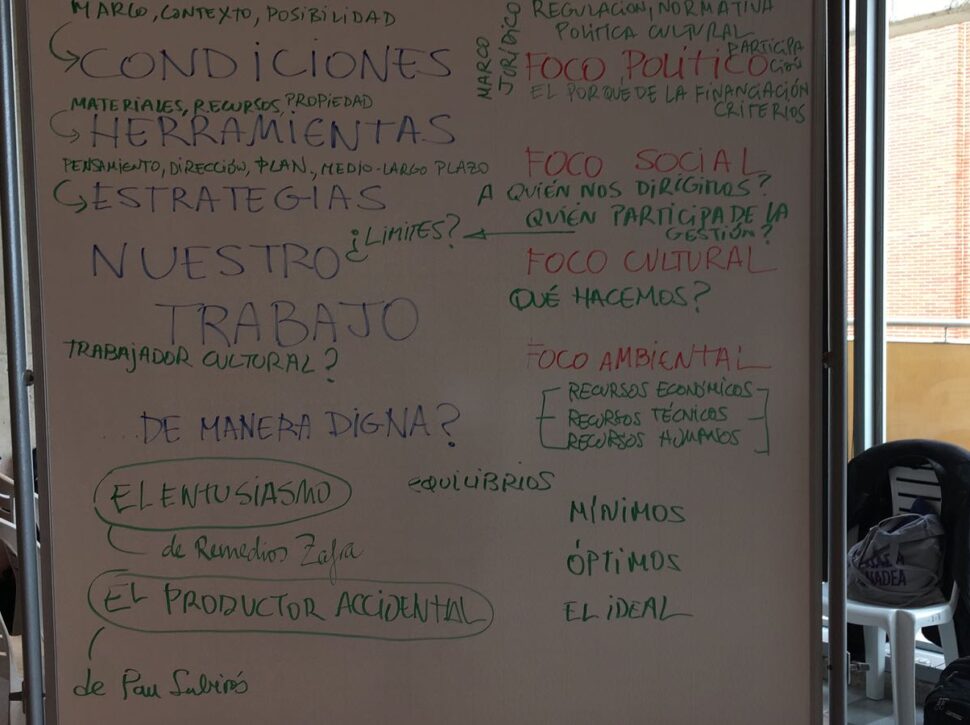 MARCO, CONTEXTO, POSIBILIDAD
CONDICIONES
MATERIALES, RECURSOS, PROPIEDAD
HERRAMIENTAS
PENSAMIENTO, DIRECCIÓN, PLAN, MEDIO-LARGO PLAZO
ESTRATEGIAS
¿LIMITES?
NUESTRO
TRABAJO
TRABAJADOR CULTURAL?
DE MANERA DIGNA?
EL ENTUSIASMO
de Remedios Zafra
EL PRODUCTOR ACCIDENTAL
de Pau
MARCO
JURÍDICO
REGULACION, NORMATIVA
POLÍTICA CULTURAL
PARTICIPA
CIÓN
FOCO POLÍTICO
EL PORQUE DE LA FINANCIACIÓN
CRITERIOS
FOCO SOCIAL
A QUIÉN NOS DIRIGIMOS?
QUIÉN PARTICIPA DE LA
GESTIÓN?
FOCO CULTURAL
QUÉ HACEMOS?
FOCO AMBIENTAL
RECURSOS ECONÓMICOS
RECURSOS TÉCNICOS
RECURSOS HUMANOS
EQUILIBRIOS
MÍNIMOS
ÓPTIMOS
EL IDEAL